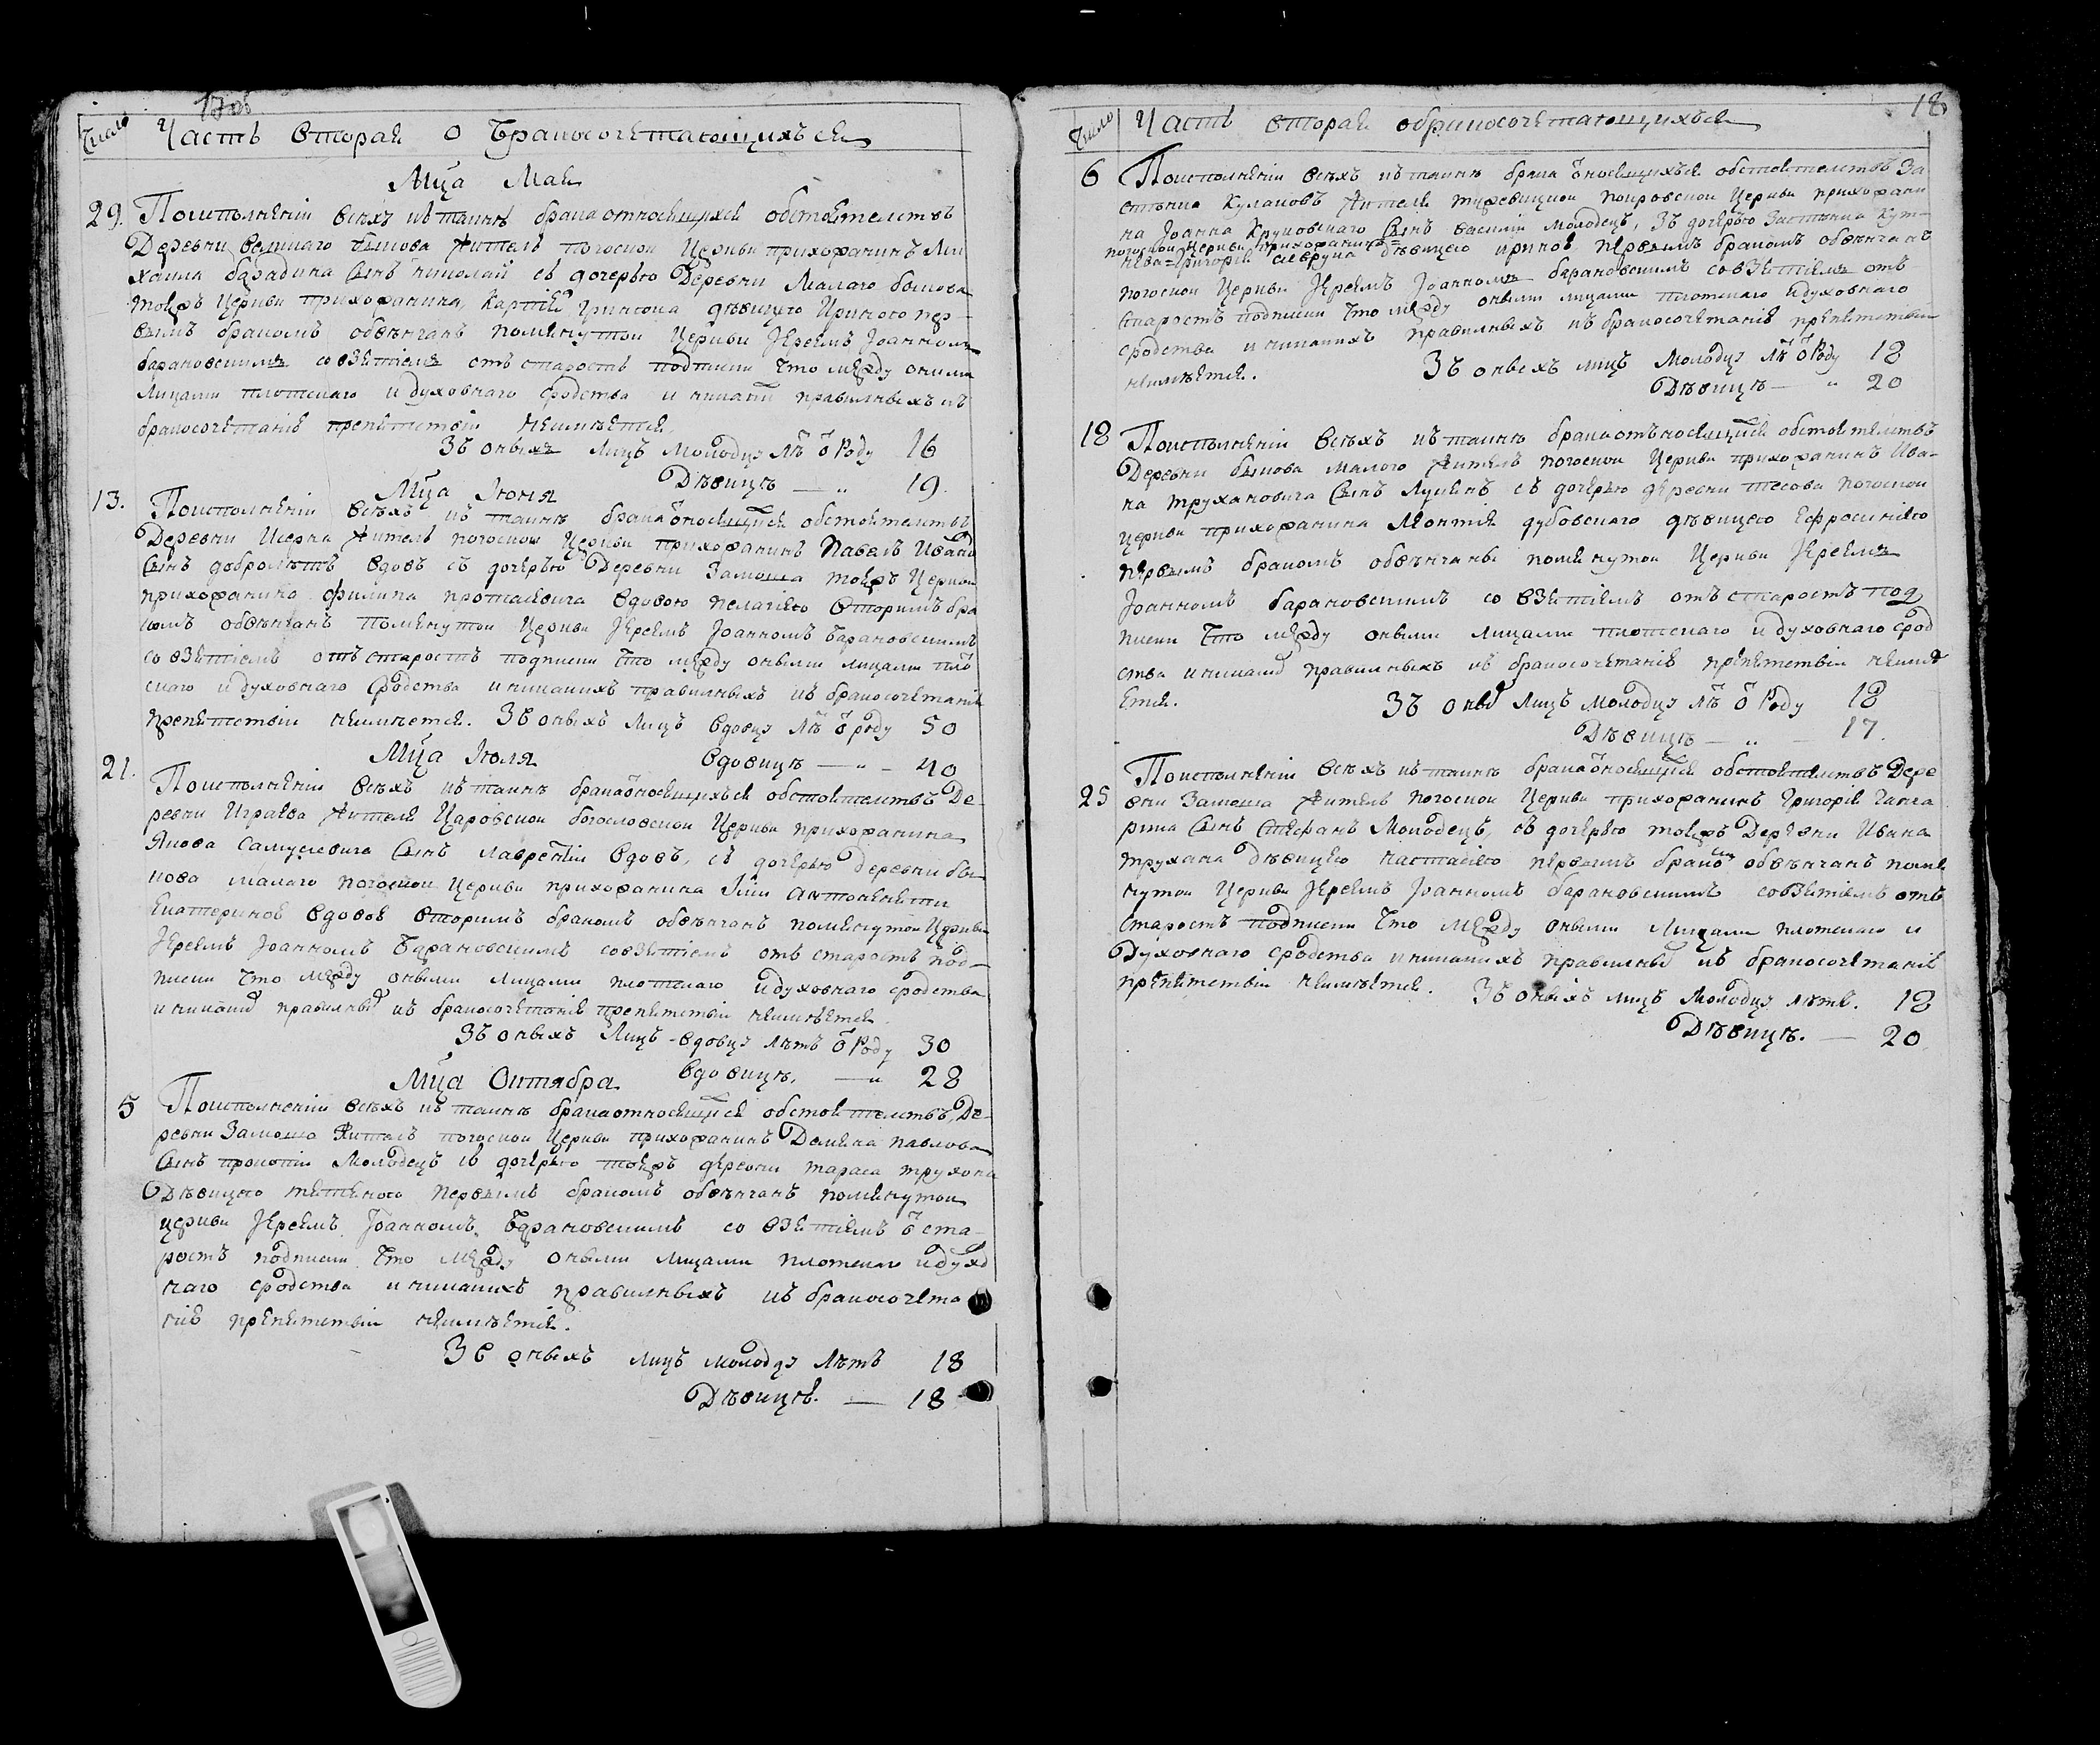 Число Часть вторая о Бракосочетающихъся
Мца Мая
29. Поисполненіи всѣхъ къ таинѣ брака относящихся обстоятелствъ
Деревни Великаго быкова житель погоской Церкви прихожанинъ Ми
хаила барадина Сынъ николай съ дочерью Деревни Малаго быкова
тоежъ Церкви прихожанина, дѣвицею Ириною пер-
вымъ бракомъ обвѣнчанъ помянутой Церкви Іереемъ Іоанномъ
барановскимъ со взятіемъ отъ старостъ подписки что между оними
Лицами плотскаго и духовнаго сродства и никаки правилныхъ къ
бракосочетанію препятствіи неимѣется.
Зъ оныхъ Лицъ Молодцу лѣ ѿ Роду 16
Дѣвицѣ — „ 19.
Мца Іюня
13. Поисполненіи всѣхъ къ таинѣ брака ѿносящися обстоятелствъ
Деревни житель погоской Церкви прихожанинъ Павелъ Ивано
Сынъ вдовъ съ дочерью Деревни Замоша тоежъ Церкви
прихожанина филипа вдовою пелагіею вторимъ бра
комъ обвѣнчанъ помянутой Церкви Іереемъ Іоанномъ Барановскимъ
со взятіемъ отъ старостъ подписки что между оными лицами пло
скаго и духовнаго сродства и никакихъ правилныхъ къ бракосочетанію
препятствіи неимѣется. Зъ оныхъ лицъ вдовцу лѣ ѿ роду 50
вдовицѣ — „ — 40
Мца Іюля
21. Поисполненіи всѣхъ къ таинѣ брака ѿносящихъся обстоятелствъ Де-
ревни Играева жителя Царовской богословской Церкви прихожанина
Якова Самуслевича Сынъ лаврентіи вдовъ, съ дочерью Деревни бы
кова малаго погоской Церкви прихожанина
Екатериною вдовою вторимъ бракомъ обвѣнчанъ помянутой Церкви
Іереемъ Іоанномъ Барановскимъ совзятіемъ отъ старостъ под-
писки что между оными лицами плотскаго и духовнаго сродства
и никаких правилных къ бракосочетанію препятствіи неимѣется.
Зъ оныхъ Лицъ вдовцу лѣтъ ѿ Роду 30
вдовицѣ, — „ 28
Мца Октября
5 Поисполненіи всѣхъ къ таинѣ брака относящися обстоятелствъ, Де-
ревни Замоша житель погоской Церкви прихожанинъ Демяна павлова
Сынъ прокопіи Молодецъ съ дочерью тоежъ деревни тараса трухана
Дѣвицею первымъ бракомъ обвѣнчанъ помянутой
церкви Іереемъ Іоанномъ Барановскимъ со взятіемъ ѿ ста-
ростъ подписки что между оными лицами плотскаго и духов
наго сродства и никакихъ правилныхъ къ бракосочета
нію препятствіи неимѣется.
Зъ оныхъ лицъ молодцу Лѣтъ 18
Дѣвицѣ. — 18
18
Число Часть вторая о бракосочетающихъся
6 Поисполненіи всѣхъ къ таинѣ брака ѿносящихъся обстоятелствъ За
стѣнка Кулаковъ жителя покровской Церкви прихожани
на Іоанна Круковскаго Сынъ василіи молодецъ, Зъ дочерью Застѣнка Кут-
погоской Церкви прихожанина
нева Григорія дѣвицею ириною первымъ бракомъ обвѣнчанъ
погоской Церкви Іереемъ Іоанномъ барановскимъ совзятіемъ отъ
Старостъ подписки что между оными лицами плотскаго и духовнаго
сродства и никакихъ правилныхъ къ бракосочетанію препятствіи
неимѣется.
Зъ оныхъ лицъ Молодцу лѣ ѿ Роду 18
Дѣвицѣ — „ 20
18 Поисполненіи всѣхъ къ таинѣ брака отъносящися обстоятелствъ
Деревни быкова малого житель погоской Церкви прихожанинъ Ива-
на трухановича Сынъ Лукянъ съ дочерью деревни тесова погоской
церкви прихожанина Леонтія дубовскаго дѣвицею Ефросиніею
первымъ бракомъ обвѣнчаны помянутой Церкви Іереемъ
Іоанномъ барановскимъ со взятіемъ отъ старостъ под
писки что между оными лицами плотскаго и духовнаго срод
ства и никаких правилныхъ къ бракосочетанію препятствіи неимѣ
ется.
Зъ оных Лицъ молодцу лѣ ѿ Роду 18
Дѣвицѣ — „ — 17.
25 Поисполненіи всѣхъ къ таинѣ брака ѿносящися обстоятелствъ Дере
вни Замоша житель погоской Церкви прихожанинъ Григорія
Сынъ Стефанъ Молодецъ, съ дочерью тоежъ Деревни Ивана
трухана дѣвицею настасіею первымъ бракомъ обвѣнчанъ помя
нутой Церкви Іереемъ Іоанномъ барановскимъ совзятіемъ отъ
Старостъ подписки что между оными Лицами плотскаго и
Духовнаго сродства и никакихъ правилных къ бракосочетанію
препятствіи неимѣется.
Зъ оныхъ лицъ Молодцу лѣтъ. 18
Дѣвицѣ. — 20